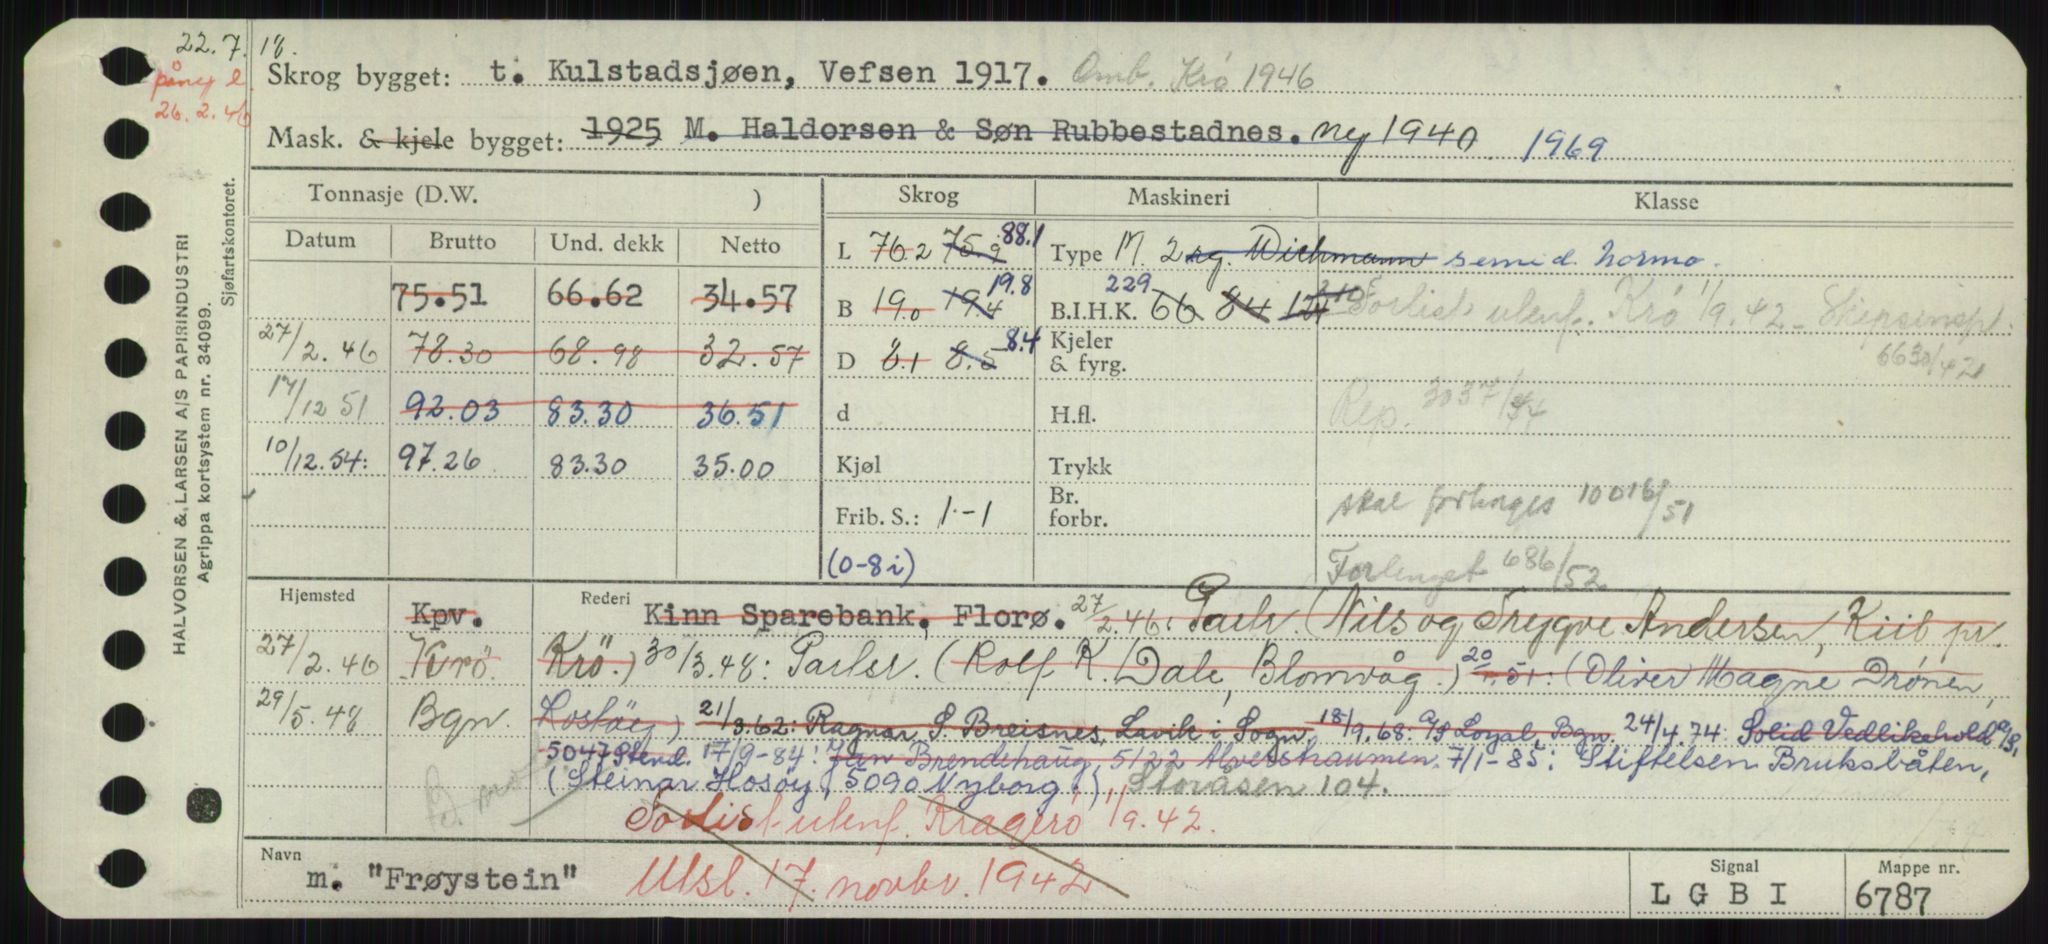 22.7.18.
påny l
26.2.46
HALVORSEN & LARSEN A/S PAPIRINDUSTRI
Agrippa kortsystem nr. 34099.
Sjøfartskontoret.
Skrog bygget: t. Kulstadsjøen, Vefsen 1917. Omb. Krö 1946
Mask. & kjele bygget: 1925 M. Haldorsen & Søn Rubbestadnes. ny 1940 1969
Tonnasje (D.W. ) Skrog Maskineri Klasse
Datum Brutto Und. dekk Netto
L 76.2 75.9 88.1 Type M. 2 sg. Wichmann semid. Normo.
75.51 66.62 34.57
B 19.0 19.4 19.8 B.I.H.K. 66 84 229 Forlist utenf. Krö 1/9.42 - Skipsinsp.
27/2.46 78.30 68.98 32.57
D 8.1 8.5 8.4 Kjeler & fyrg. 6630/42
17/12 51 92.03 83.30 36.51
d H.fl. Rep. 3037/44
10/12.54: 97.26 83.30 35.00
Kjøl Trykk
Frib. S.: 1-1 Br. forbr. skal forlenges 10016/51
(0-8i) Forlenget 686/52
Hjemsted Kpv. Rederi Kinn Sparebank, Florø. 27/2.46: Partr. (Nils og Trygve Andersen, Kiil pr.
27/2.46 Krö. Krö.) 30/3.48: Partsr. (Rolf K. Dale, Blomvåg.) 20/1.51: (Oliver Magne Drönen,
29/5.48 Bgn. 21/3.62: Ragnar S. Breisnes, Lavik i Sogn. 18/9.68: A/S Loyal, Bgn. 24/4.74: Solid Vedlikehold A/S,
5047 Stend. 17/9-84: Jan Brendehaug, 5122 Alvershaumen. 7/1-85: Stiftelsen Bruksbåten,
(Steinar Hosöy, 5090 Nyborg.), Storåsen 104.
Forlist utenf. Kragerö 1/9.42.
Navn m. "Frøystein" Utsl. 17. novbr. 1942
Signal LGBI
Mappe nr. 6787